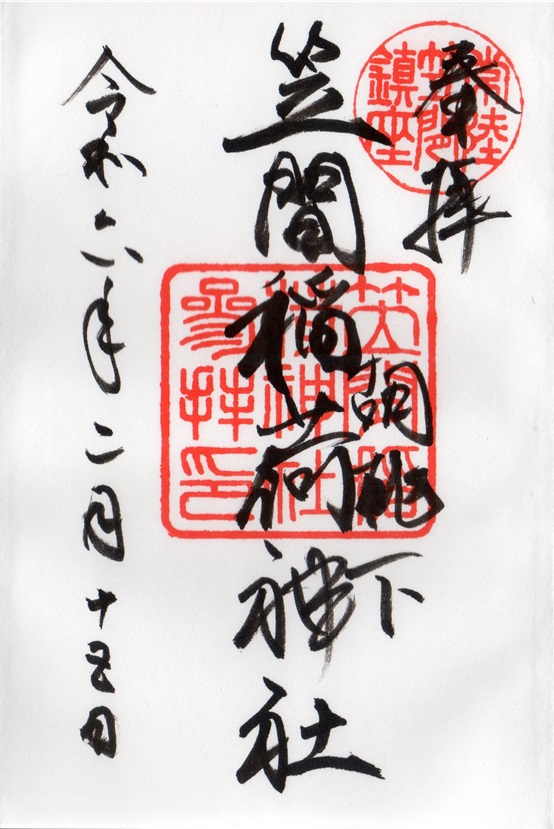 奉拝
常陸
笠間
鎮座
胡桃下
笠間稲荷神社
笠間稲
荷神社
参拝印
令和六年二月十五日